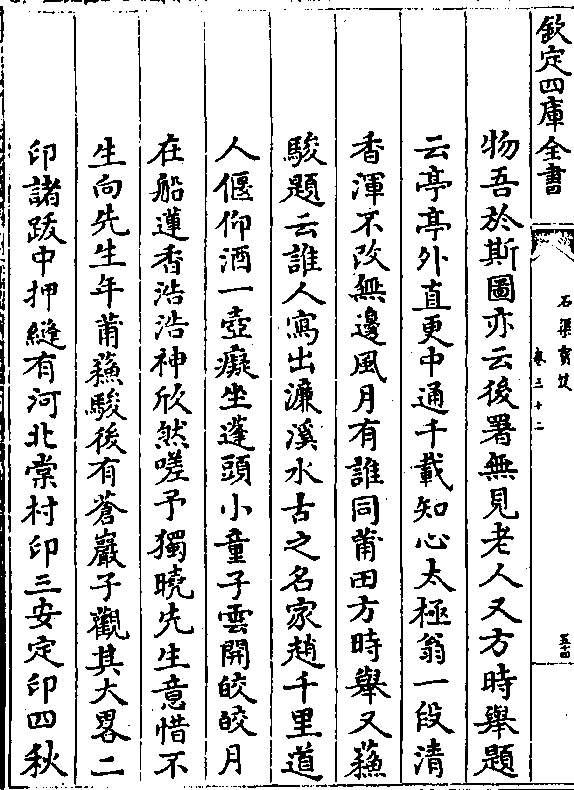 欽定四庫全書
石渠寳笈
卷三十二
五十四
物吾於斯圖亦云後署無見老人又方時舉題
云亭亭外直更中通千載知心太極翁一段清
香渾不改無邊風月有誰同莆田方時舉又蘓
駿題云誰人寫出濂溪水古之名家趙千里道
人偃仰酒一壺癡坐蓬頭小童子雲開皎皎月
在船蓮香浩浩神欣然嗟予獨曉先生意惜不
生向先生年莆蘓駿後有蒼巖子觀其大畧二
印諸跋中押縫有河北棠村印三安定印四秋